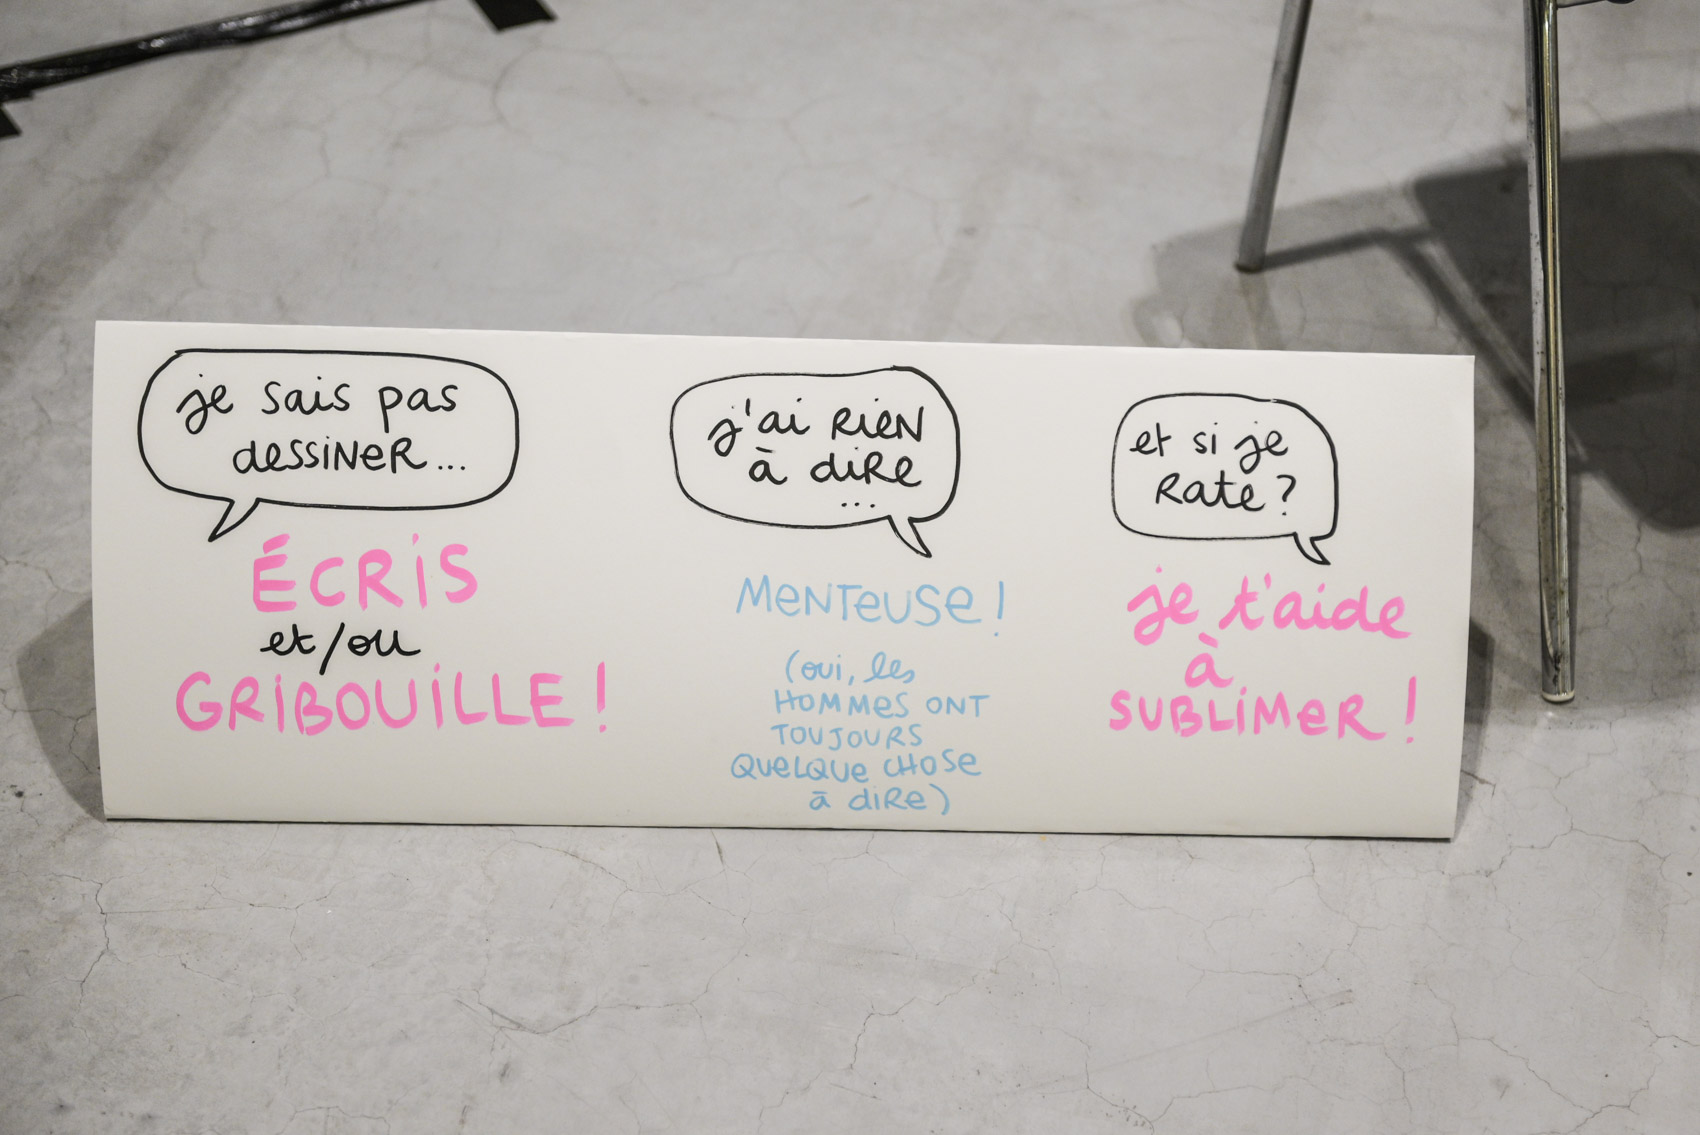 je sais pas
dessiner...
ÉCRIS
et/ou
GRIBOUILLE !
j'ai rien
à dire
...
Menteuse !
(oui, les
hommes ont
toujours
quelque chose
à dire)
et si je
rate ?
je t'aide
à
sublimer !